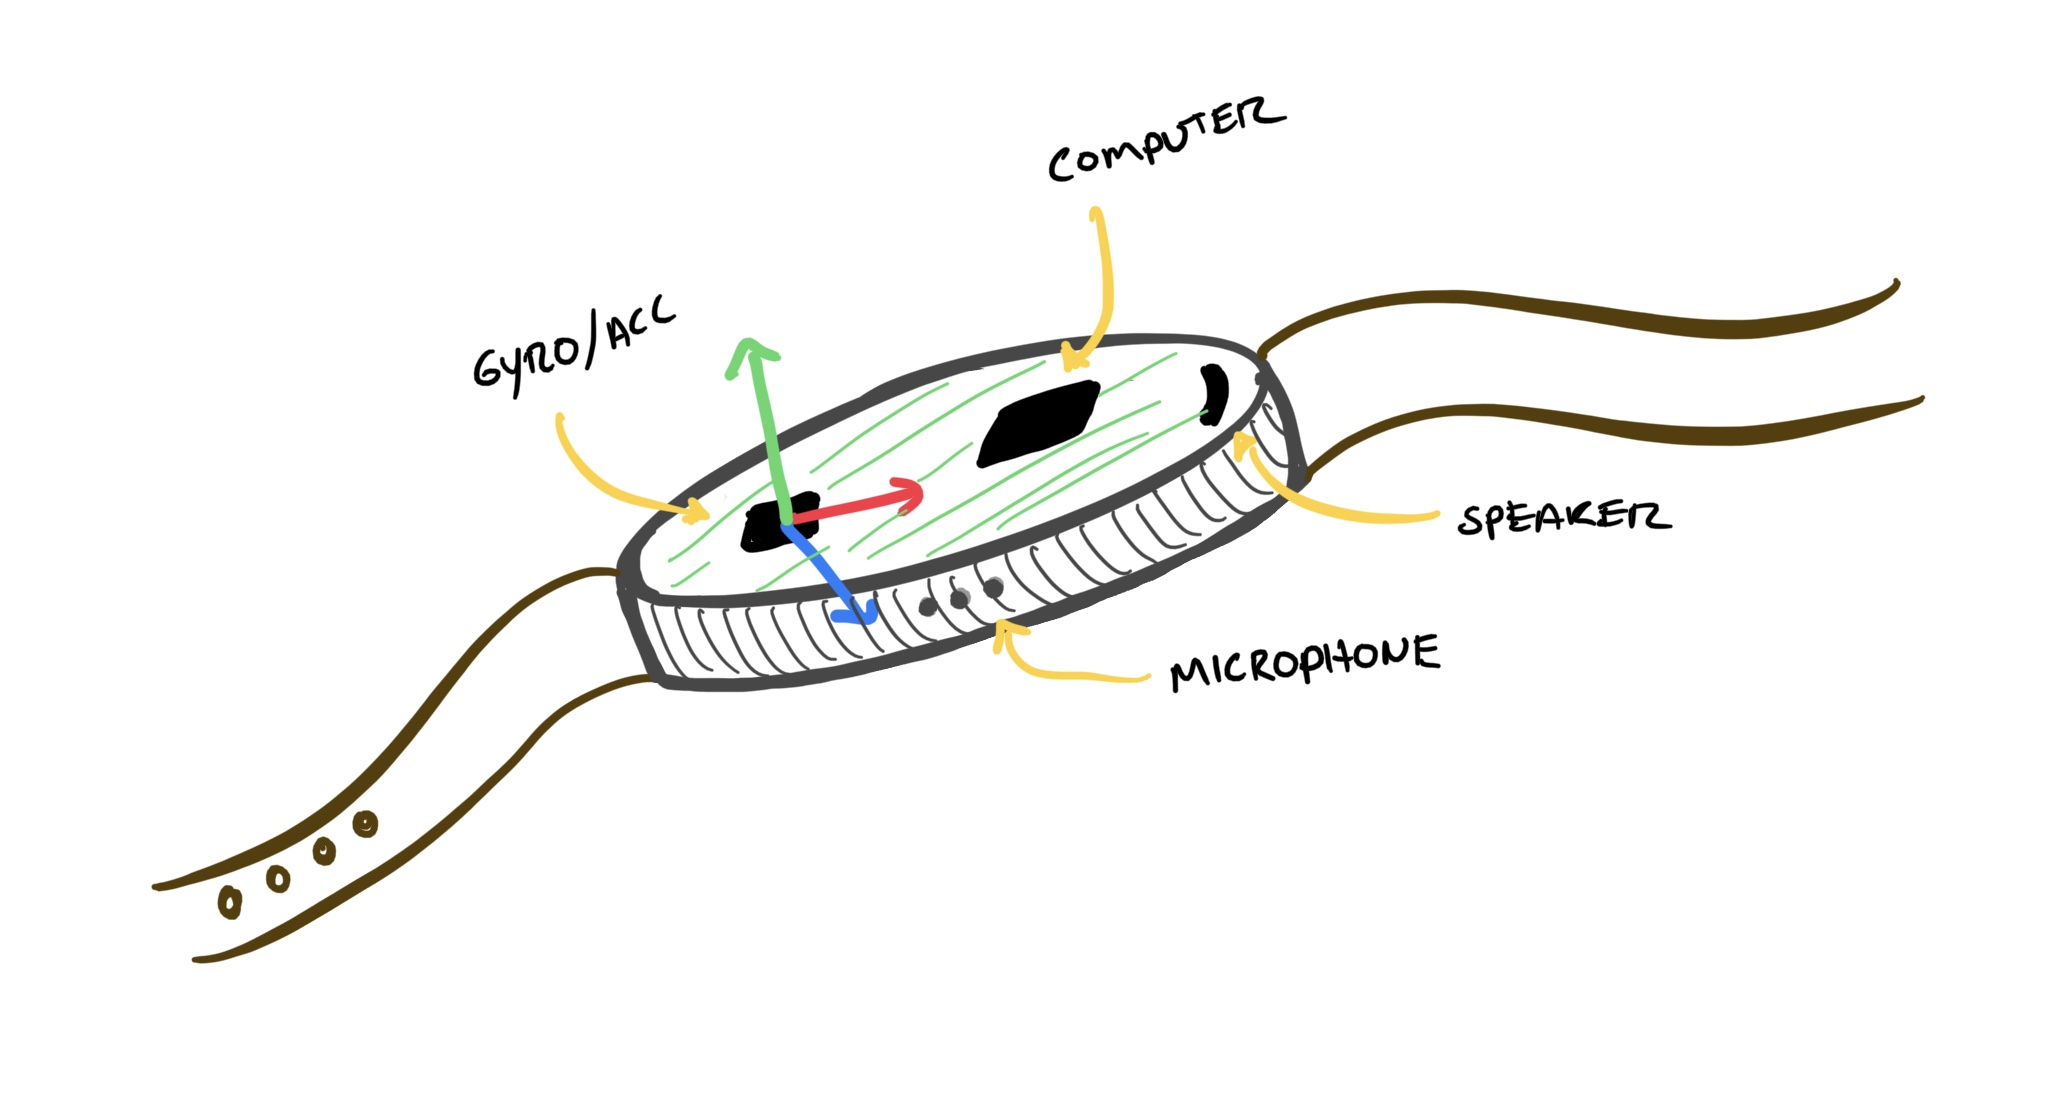 COMPUTER
GYRO/ACC
SPEAKER
MICROPHONE